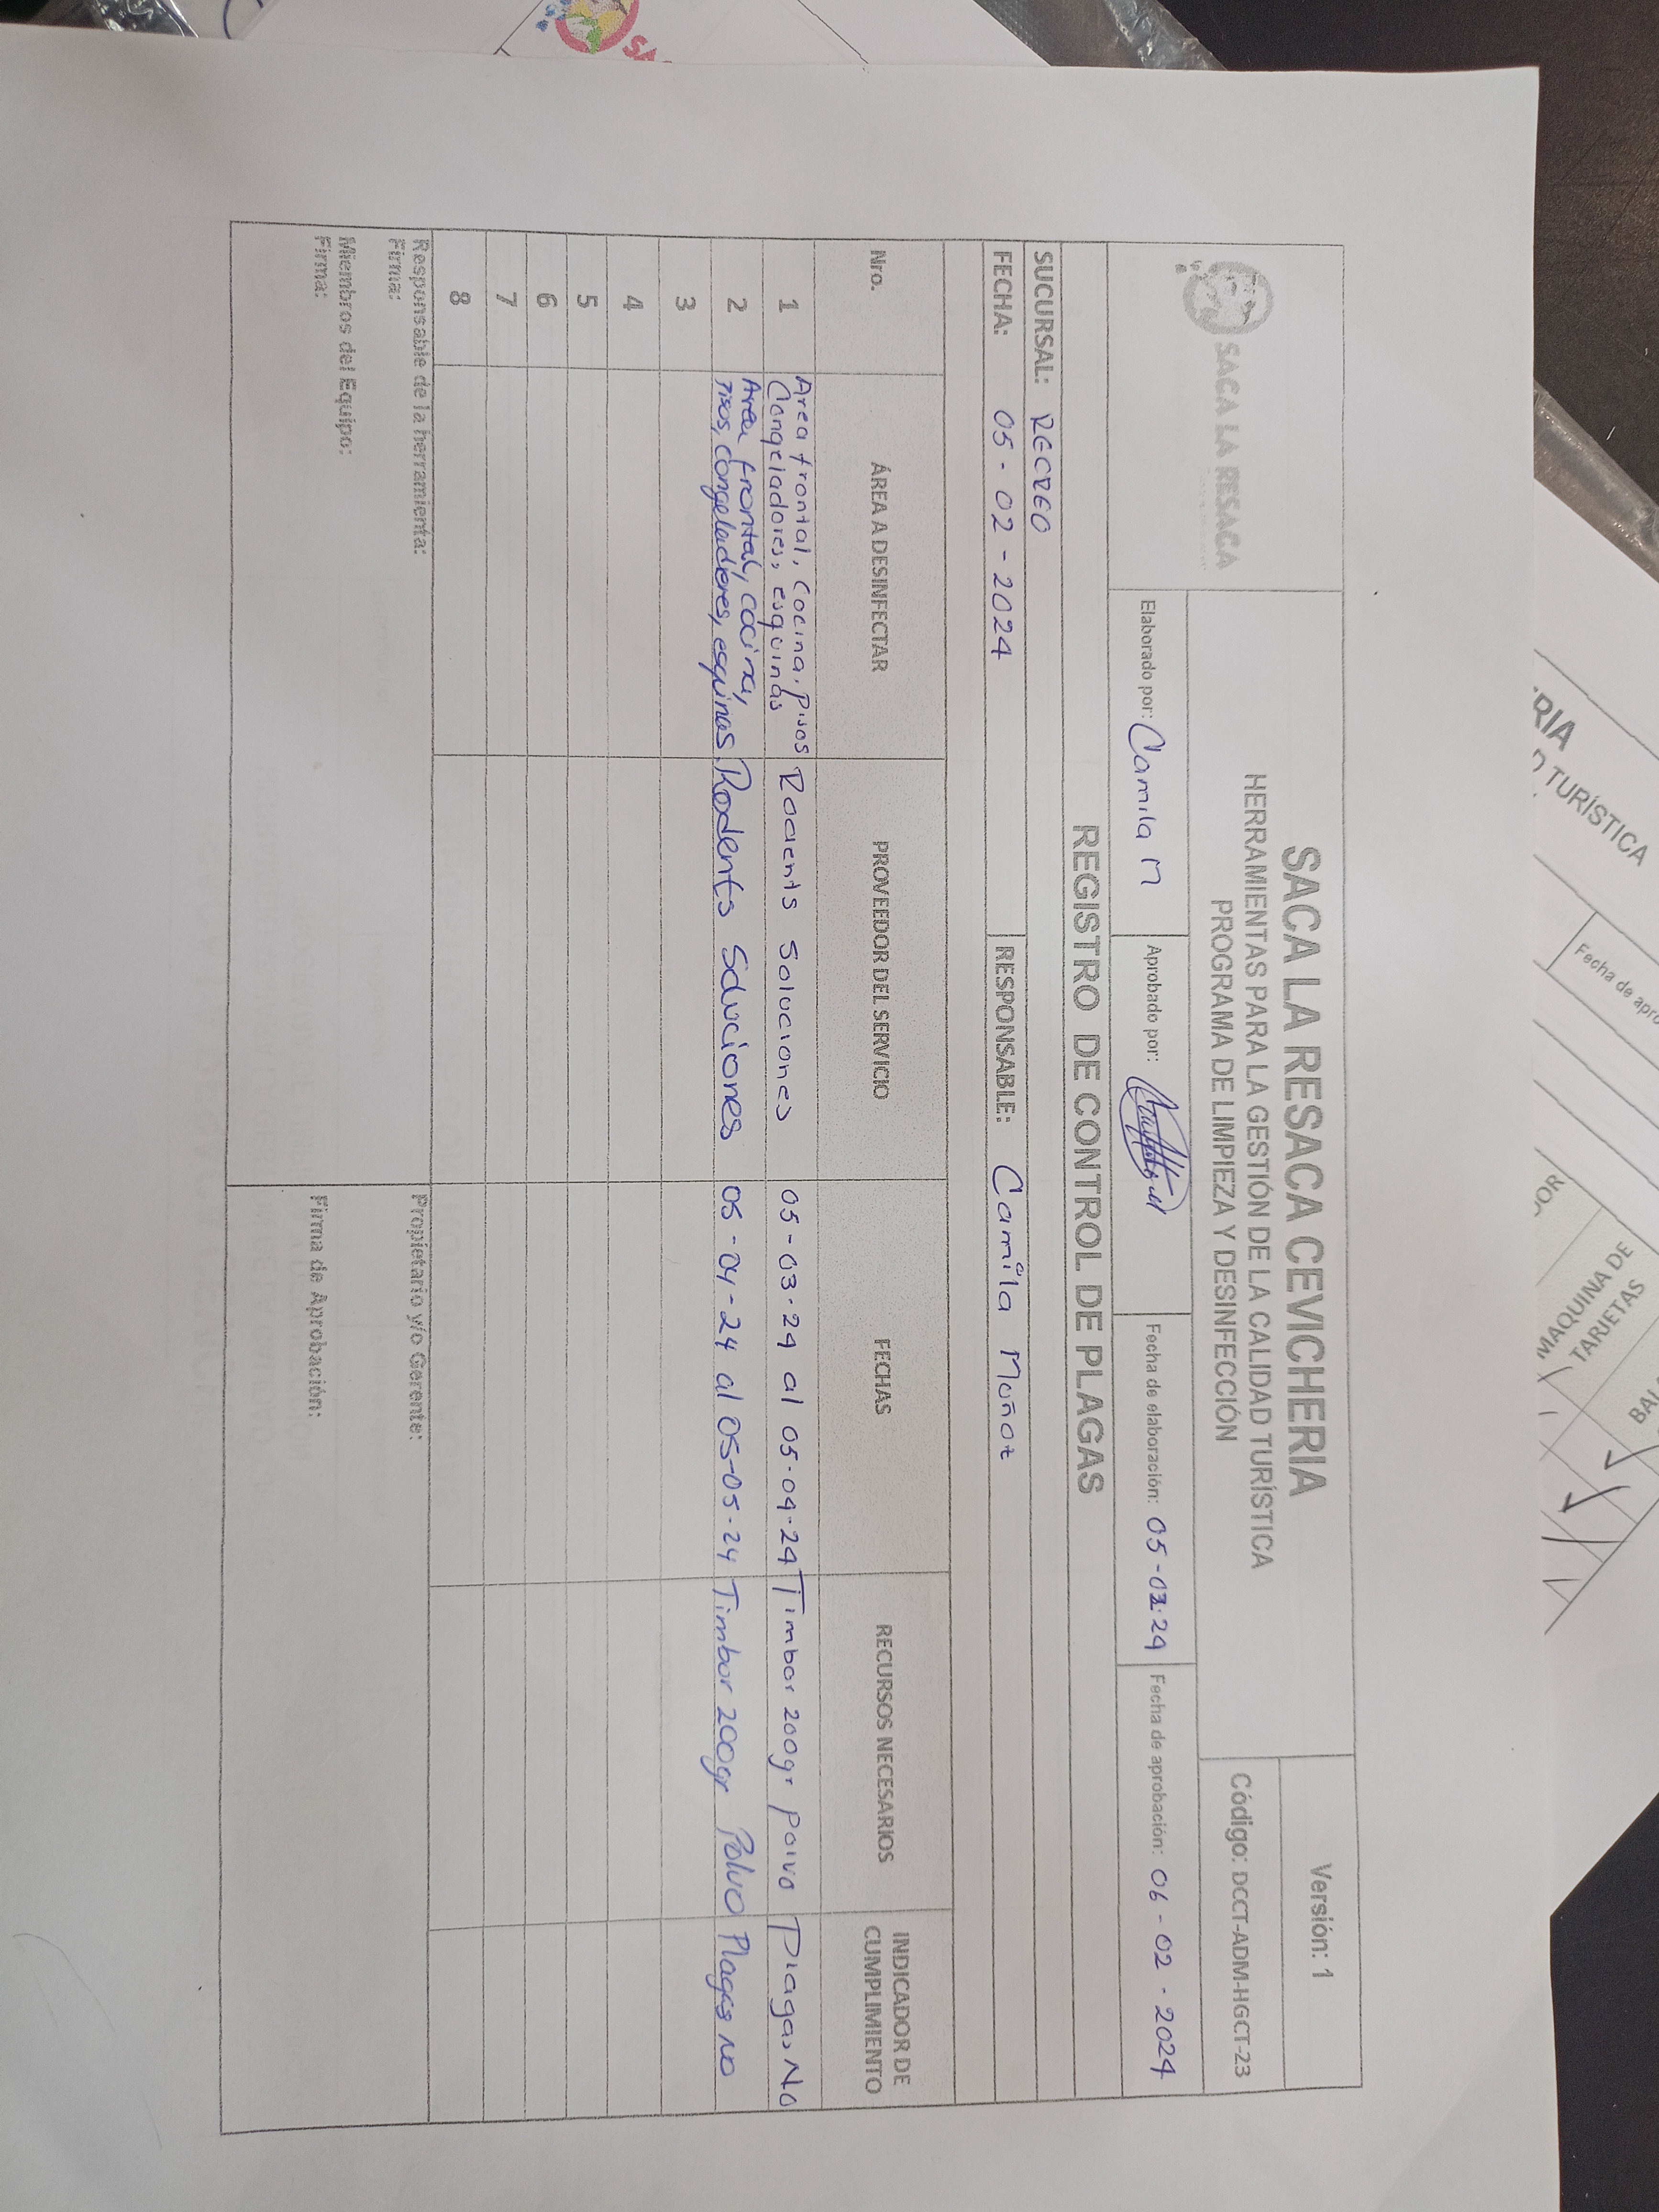 SACA LA RESACA
SACA LA RESACA CEVICHERIA
HERRAMIENTAS PARA LA GESTIÓN DE LA CALIDAD TURÍSTICA
PROGRAMA DE LIMPIEZA Y DESINFECCIÓN
Versión: 1
Código: DCCT-ADM-HGCT-23
Elaborado por: Camila M
Aprobado por:
Fecha de elaboración: 05-02-24
Fecha de aprobación: 06-02-2024
REGISTRO DE CONTROL DE PLAGAS
SUCURSAL: RECREO
FECHA: 05-02-2024
RESPONSABLE: Camila Muñoz
Nro. ÁREA A DESINFECTAR PROVEEDOR DEL SERVICIO FECHAS RECURSOS NECESARIOS INDICADOR DE CUMPLIMIENTO
1 Area frontal, Cocina, Pisos Rodents Soluciones 05-03-24 al 05-04-24 Timbor 200gr Polvo Plagas No
Congeladores, esquinas
2 Area frontal, cocina, Rodents Soluciones 05-04-24 al 05-05-24 Timbor 200gr Polvo Plagas no
Pisos, congeladores, esquinas
3
4
5
6
7
8
Responsable de la herramienta:
Firma:
Miembros del Equipo:
Firma:
Propietario y/o Gerente:
Firma de Aprobación:
RIA
TURÍSTICA
Fecha de apro
MAQUINA DE
TARJETAS